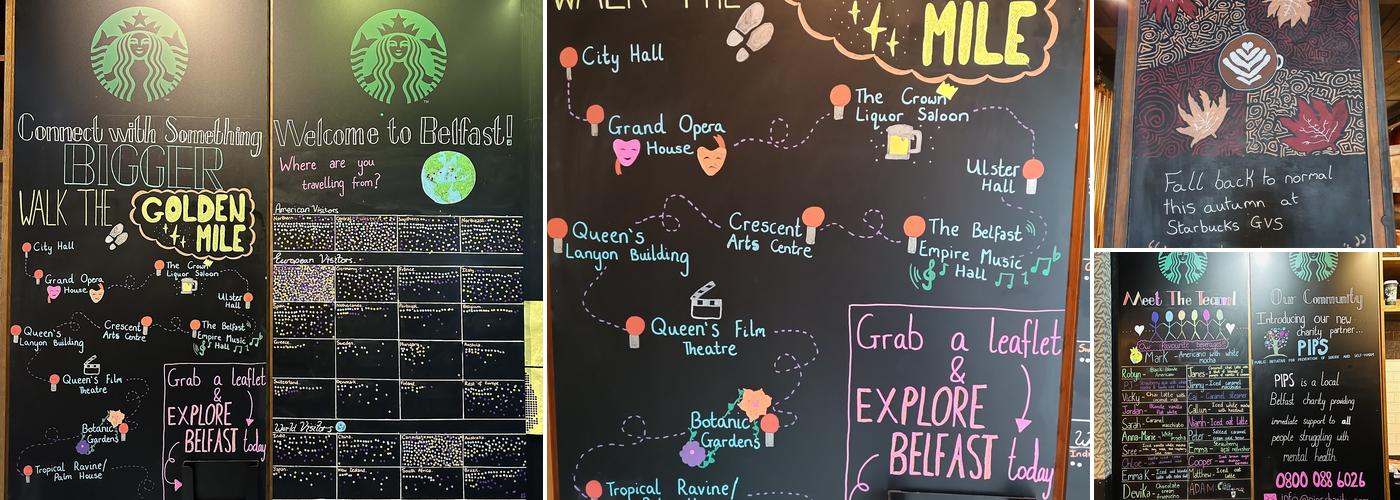 Connect with Something
BIGGER
WALK THE
GOLDEN
MILE
City Hall
Grand Opera
House
The Crown
Liquor Saloon
Ulster
Hall
Queen's
Lanyon Building
Crescent
Arts Centre
The Belfast
Empire Music
Hall
Queen's Film
Theatre
Botanic
Gardens
Tropical Ravine/
Palm House
Grab a leaflet
&
EXPLORE
BELFAST today
Welcome to Belfast!
Where are you
travelling from?
American Visitors
European Visitors
Germany
France
Italy
Spain
Netherlands
Portugal
Belgium
Greece
Sweden
Hungary
Switzerland
Denmark
Finland
Rest of Europe
World Visitors
India
China
Australia
Japan
New Zealand
South Africa
Brazil
WALK THE
MILE
City Hall
Grand Opera
House
The Crown
Liquor Saloon
Ulster
Hall
Queen's
Lanyon Building
Crescent
Arts Centre
The Belfast
Empire Music
Hall
Queen's Film
Theatre
Botanic
Gardens
Tropical Ravine/
Grab a leaflet
&
EXPLORE
BELFAST today
Fall back to normal
this autumn at
Starbucks GVS
Meet The Team!
Our favourite beverages!
Mark - Americano with white
mocha
Robyn - Black Blonde
Americano
James -
PJ
Jinny - Iced caramel
macchiato
Vicky - Chai latte with
Caramel steamer
Jordan - Blonde vanilla
flat white
Callum - Iced white mocha
Sarah - Caramel
macchiato
Niamh - Iced oat latte
Anna-Marie - White
mocha
Peter - Salted caramel
Sree
Emma - Strawberry
Chloe
Cooper
Emma K
Matthew - Iced oat
latte
Devika - Chocolate
cream
ADAM
Our Community
Introducing our new
charity partner...
PIPS
PUBLIC INITIATIVE FOR PREVENTION OF SUICIDE AND SELF-HARM
PIPS is a local
Belfast charity providing
immediate support to all
people struggling with
mental health.
0800 088 6026